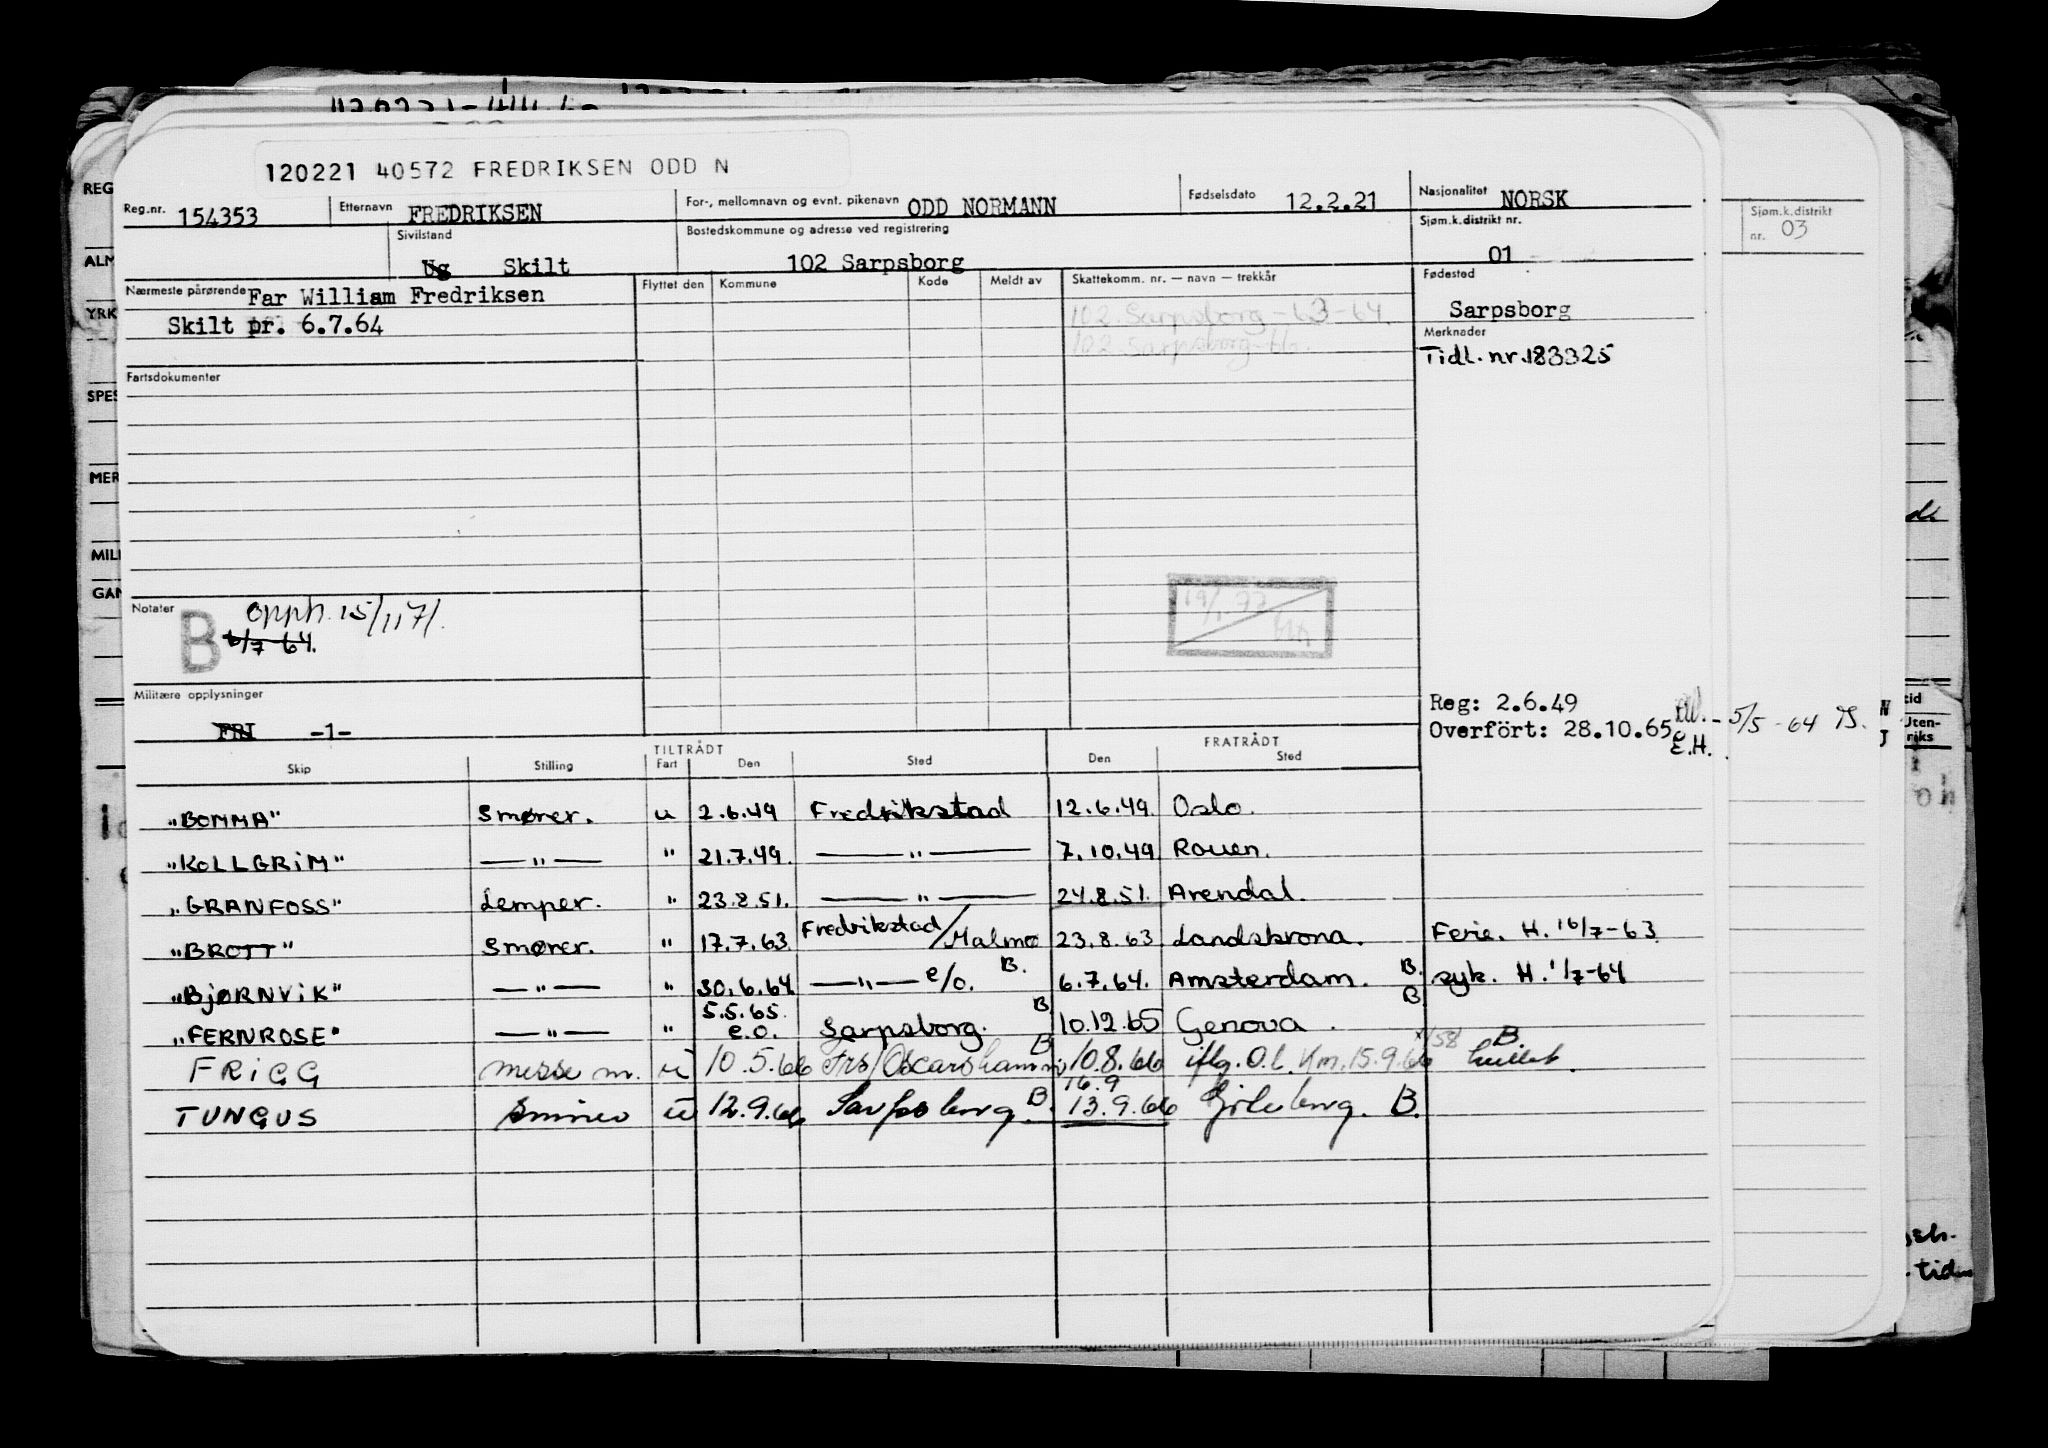 120221 40572 FREDRIKSEN ODD N
Reg.nr. 154353 Etternavn FREDRIKSEN For-, mellomnavn og evnt. pikenavn ODD NORMANN Fødselsdato 12.2.21 Nasjonalitet NORSK
Sivilstand Ug Skilt Bostedskommune og adresse ved registrering 102 Sarpsborg Sjøm.k.distrikt nr. 01
Sjøm.k.distrikt nr. 03
Nærmeste pårørende Far William Fredriksen
Skilt pr. 6.7.64
Flyttet den Kommune Kode Meldt av Skattekomm. nr. — navn — trekkår
102 Sarpsborg - 63-64.
102 Sarpsborg-66.
Fødested
Sarpsborg
Merknader
Tidl. nr. 183325
Fartsdokumenter
Notater
B opph. 15/1 171.
6/7-64.
Militære opplysninger
FRI -1-
Reg: 2.6.49
Overført: 28.10.65
E.H.
5/5-64
TILTRÅDT FRATRÅDT
Skip Stilling Fart Den Sted Den Sted
"BOMMA" Smører. u 2.6.49 Fredrikstad 12.6.49. Oslo.
"KOLLGRIM" —"— " 21.7.49. —"— 7.10.49 Rouen.
"GRANFOSS" Lemper. " 23.8.51. —"— 24.8.51. Arendal.
"BROTT" Smører. " 17.7.63. Fredrikstad/Malmø 23.8.63 Landskrona. Ferie. H. 16/7-63
"BJØRNVIK" —"— " 30.6.64. —"— e/o. B. 6.7.64. Amsterdam. B. syk. H. 1/7-64
"FERNROSE" —"— " 5.5.65. e.o. Sarpsborg. B 10.12.65 Genova. B
FRIGG messe m. u 10.5.66 Frs/Oscarshamn B 10.8.66 iflg. O.l. Km. 15.9.66 B.
TUNGUS Smører u 12.9.66 Sarpsborg B. 16.9 13.9.66 Göteborg. B.
REG
ALM
YRK
SPES
MER
MILI
GAN
tid
Uten-
riks
tid